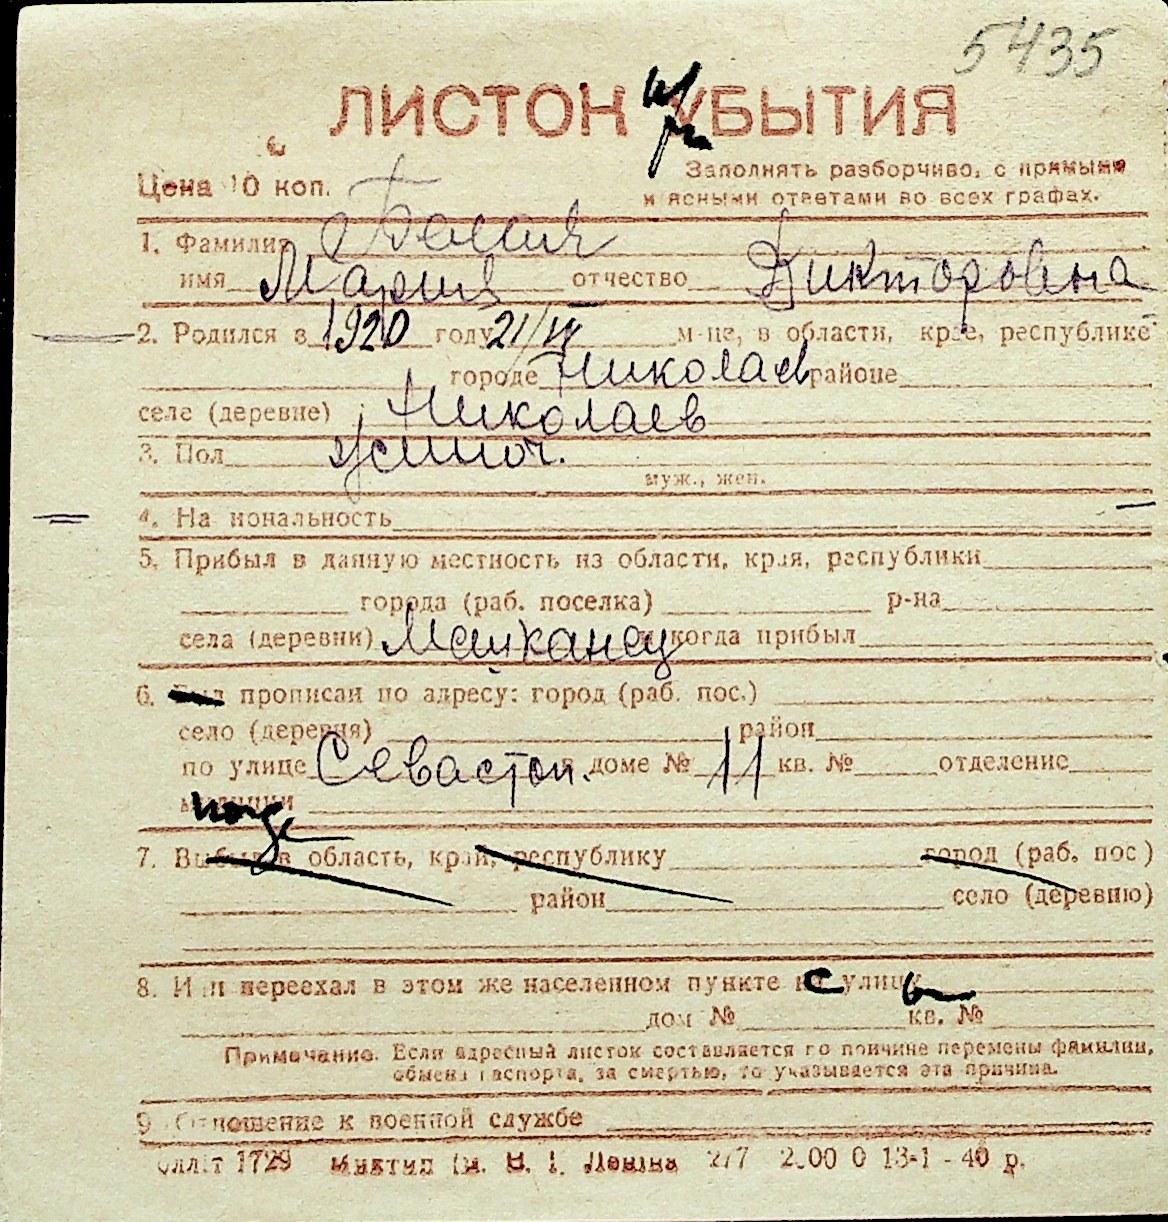 5435
ЛИСТОК УБЫТИЯ
Цена 10 коп.
Заполнять разборчиво, с прямыми
и ясными ответами во всех графах.
1. Фамилия
имя Мария отчество Викторовна
2. Родился в 1920 году 21/IV м-це, в области, крае, республике
городе Николаев районе
селе (деревне) Николаев
3. Пол
муж., жен.
4. Национальность
5. Прибыл в данную местность из области, края, республики
города (раб. поселка) р-на
села (деревни) и когда прибыл
6. Был прописан по адресу: город (раб. пос.)
село (деревня) район
по улице Севастоп. в доме № 11 кв. № отделение
милиции
7. Выбыл в область, край, республику город (раб. пос)
район село (деревню)
8. Или переехал в этом же населенном пункте с улицы
дом № кв. №
Примечание. Если адресный листок составляется по причине перемены фамилии,
обмена паспорта, за смертью, то указывается эта причина.
9. Отношение к военной службе
1729 им. В. И. Ленина 13-1 - 40 р.